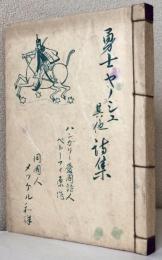 勇士ヤーノシュ
其他 詩集
ハンガリー愛国詩人
ペトーフィ原作
同国人
メッケル和譯